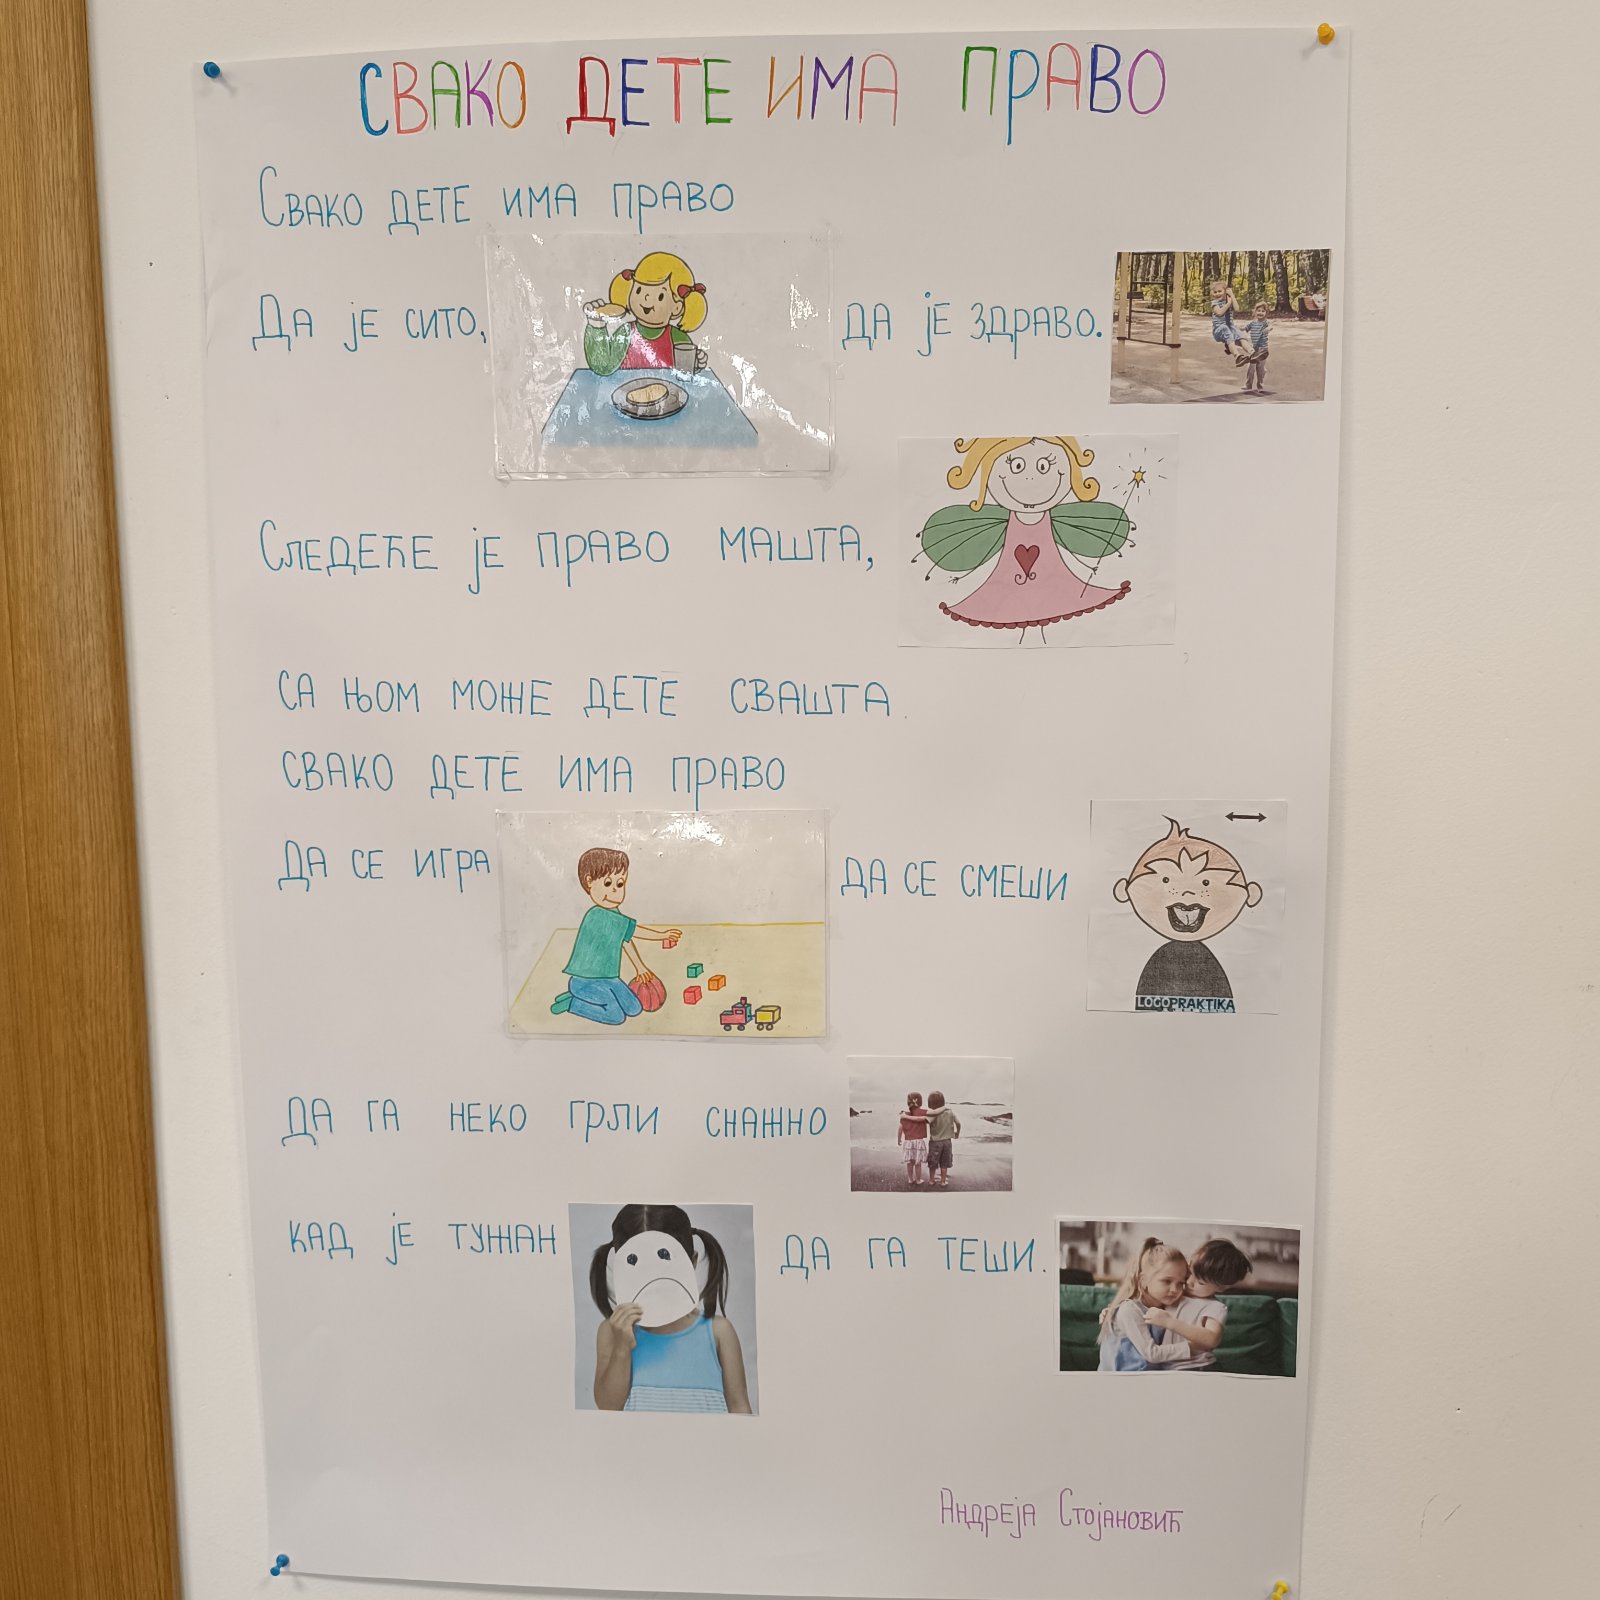 СВАКО ДЕТЕ ИМА ПРАВО
СВАКО ДЕТЕ ИМА ПРАВО
ДА ЈЕ СИТО, ДА ЈЕ ЗДРАВО.
СЛЕДЕЋЕ ЈЕ ПРАВО МАШТА,
СА ЊОМ МОЖЕ ДЕТЕ СВАШТА.
СВАКО ДЕТЕ ИМА ПРАВО
ДА СЕ ИГРА ДА СЕ СМЕШИ
LOGOPRAKTIKA
ДА ГА НЕКО ГРЛИ СНАЖНО
КАД ЈЕ ТУЖАН ДА ГА ТЕШИ.
АНДРЕЈА СТОЈАНОВИЋ